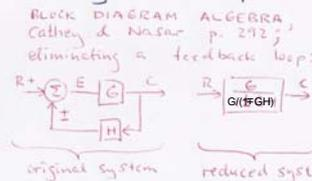 BLOCK DIAGRAM ALGEBRA,
Cathey & Nasar p. 292;
eliminating a feedback loop:
R + Σ E G C
±
H
R G C
G/(1∓GH)
original system
reduced syst